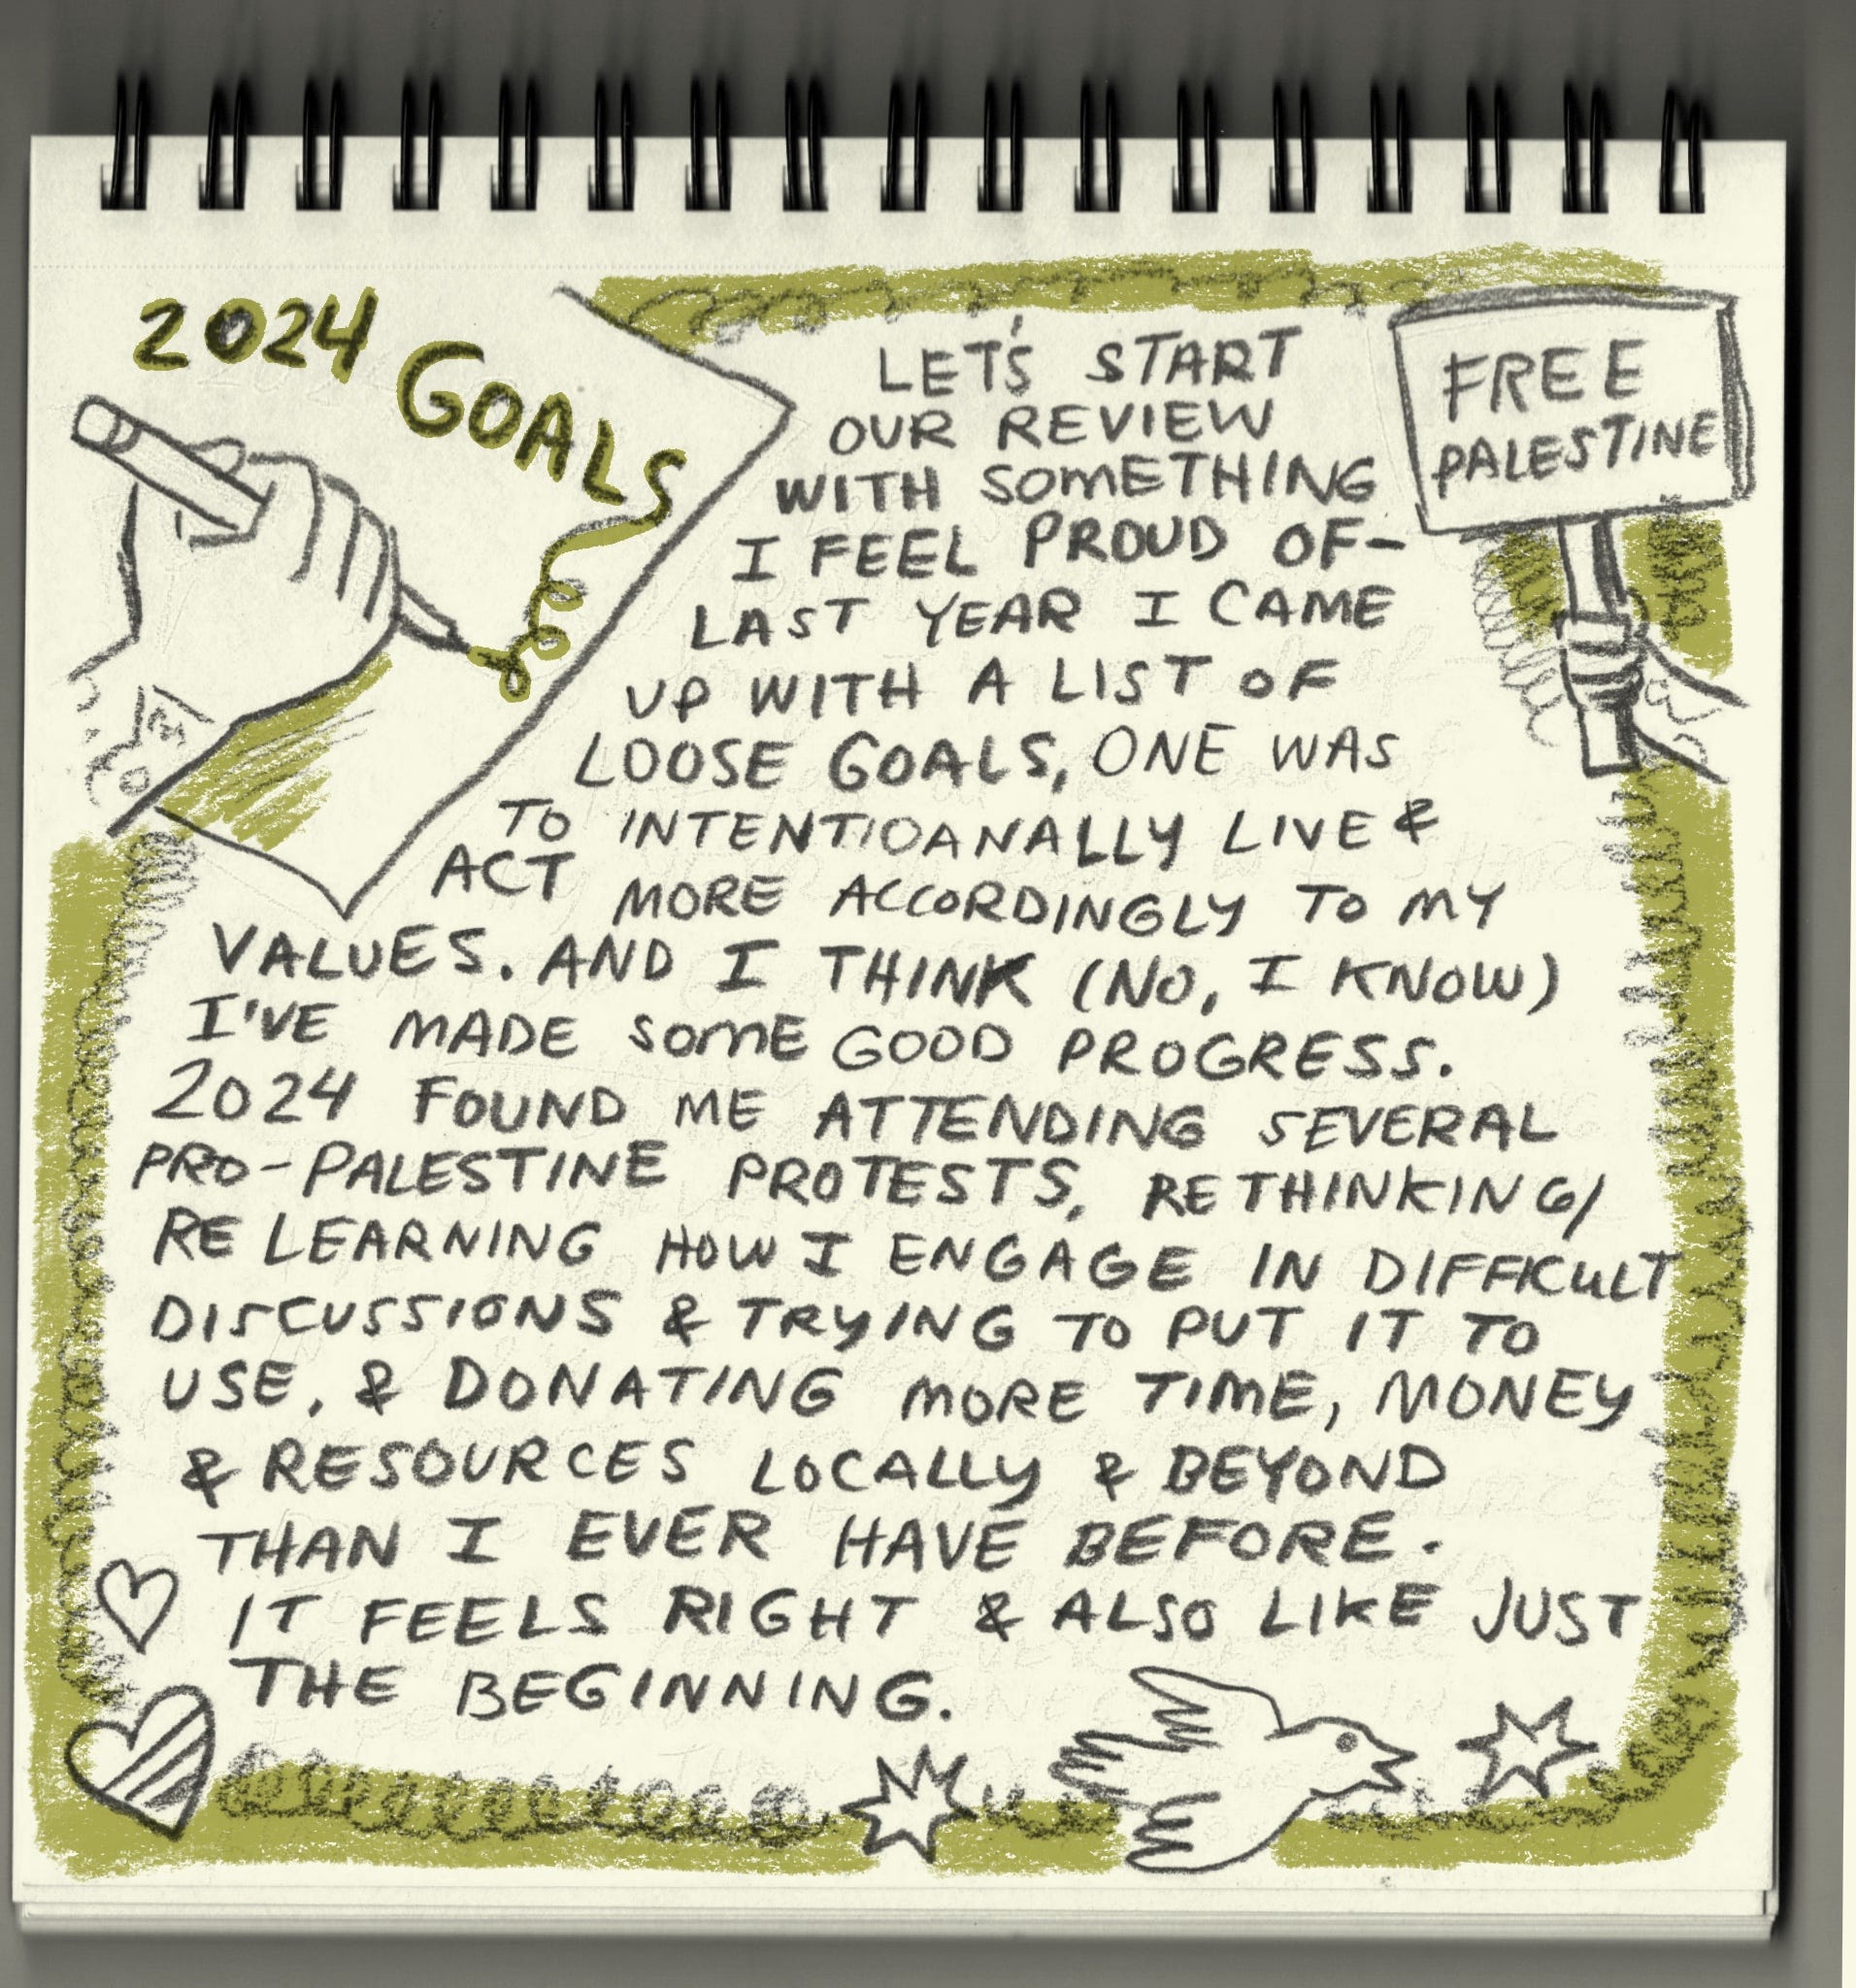 2024
GOALS
FREE
PALESTINE
LET'S START
OUR REVIEW
WITH SOMETHING
I FEEL PROUD OF-
LAST YEAR I CAME
UP WITH A LIST OF
LOOSE GOALS, ONE WAS
TO INTENTIOANALLY LIVE &
ACT MORE ACCORDINGLY TO MY
VALUES. AND I THINK (NO, I KNOW)
I'VE MADE SOME GOOD PROGRESS.
2024 FOUND ME ATTENDING SEVERAL
PRO-PALESTINE PROTESTS, RETHINKING/
RE LEARNING HOW I ENGAGE IN DIFFICULT
DISCUSSIONS & TRYING TO PUT IT TO
USE, & DONATING MORE TIME, MONEY
& RESOURCES LOCALLY & BEYOND
THAN I EVER HAVE BEFORE.
IT FEELS RIGHT & ALSO LIKE JUST
THE BEGINNING.